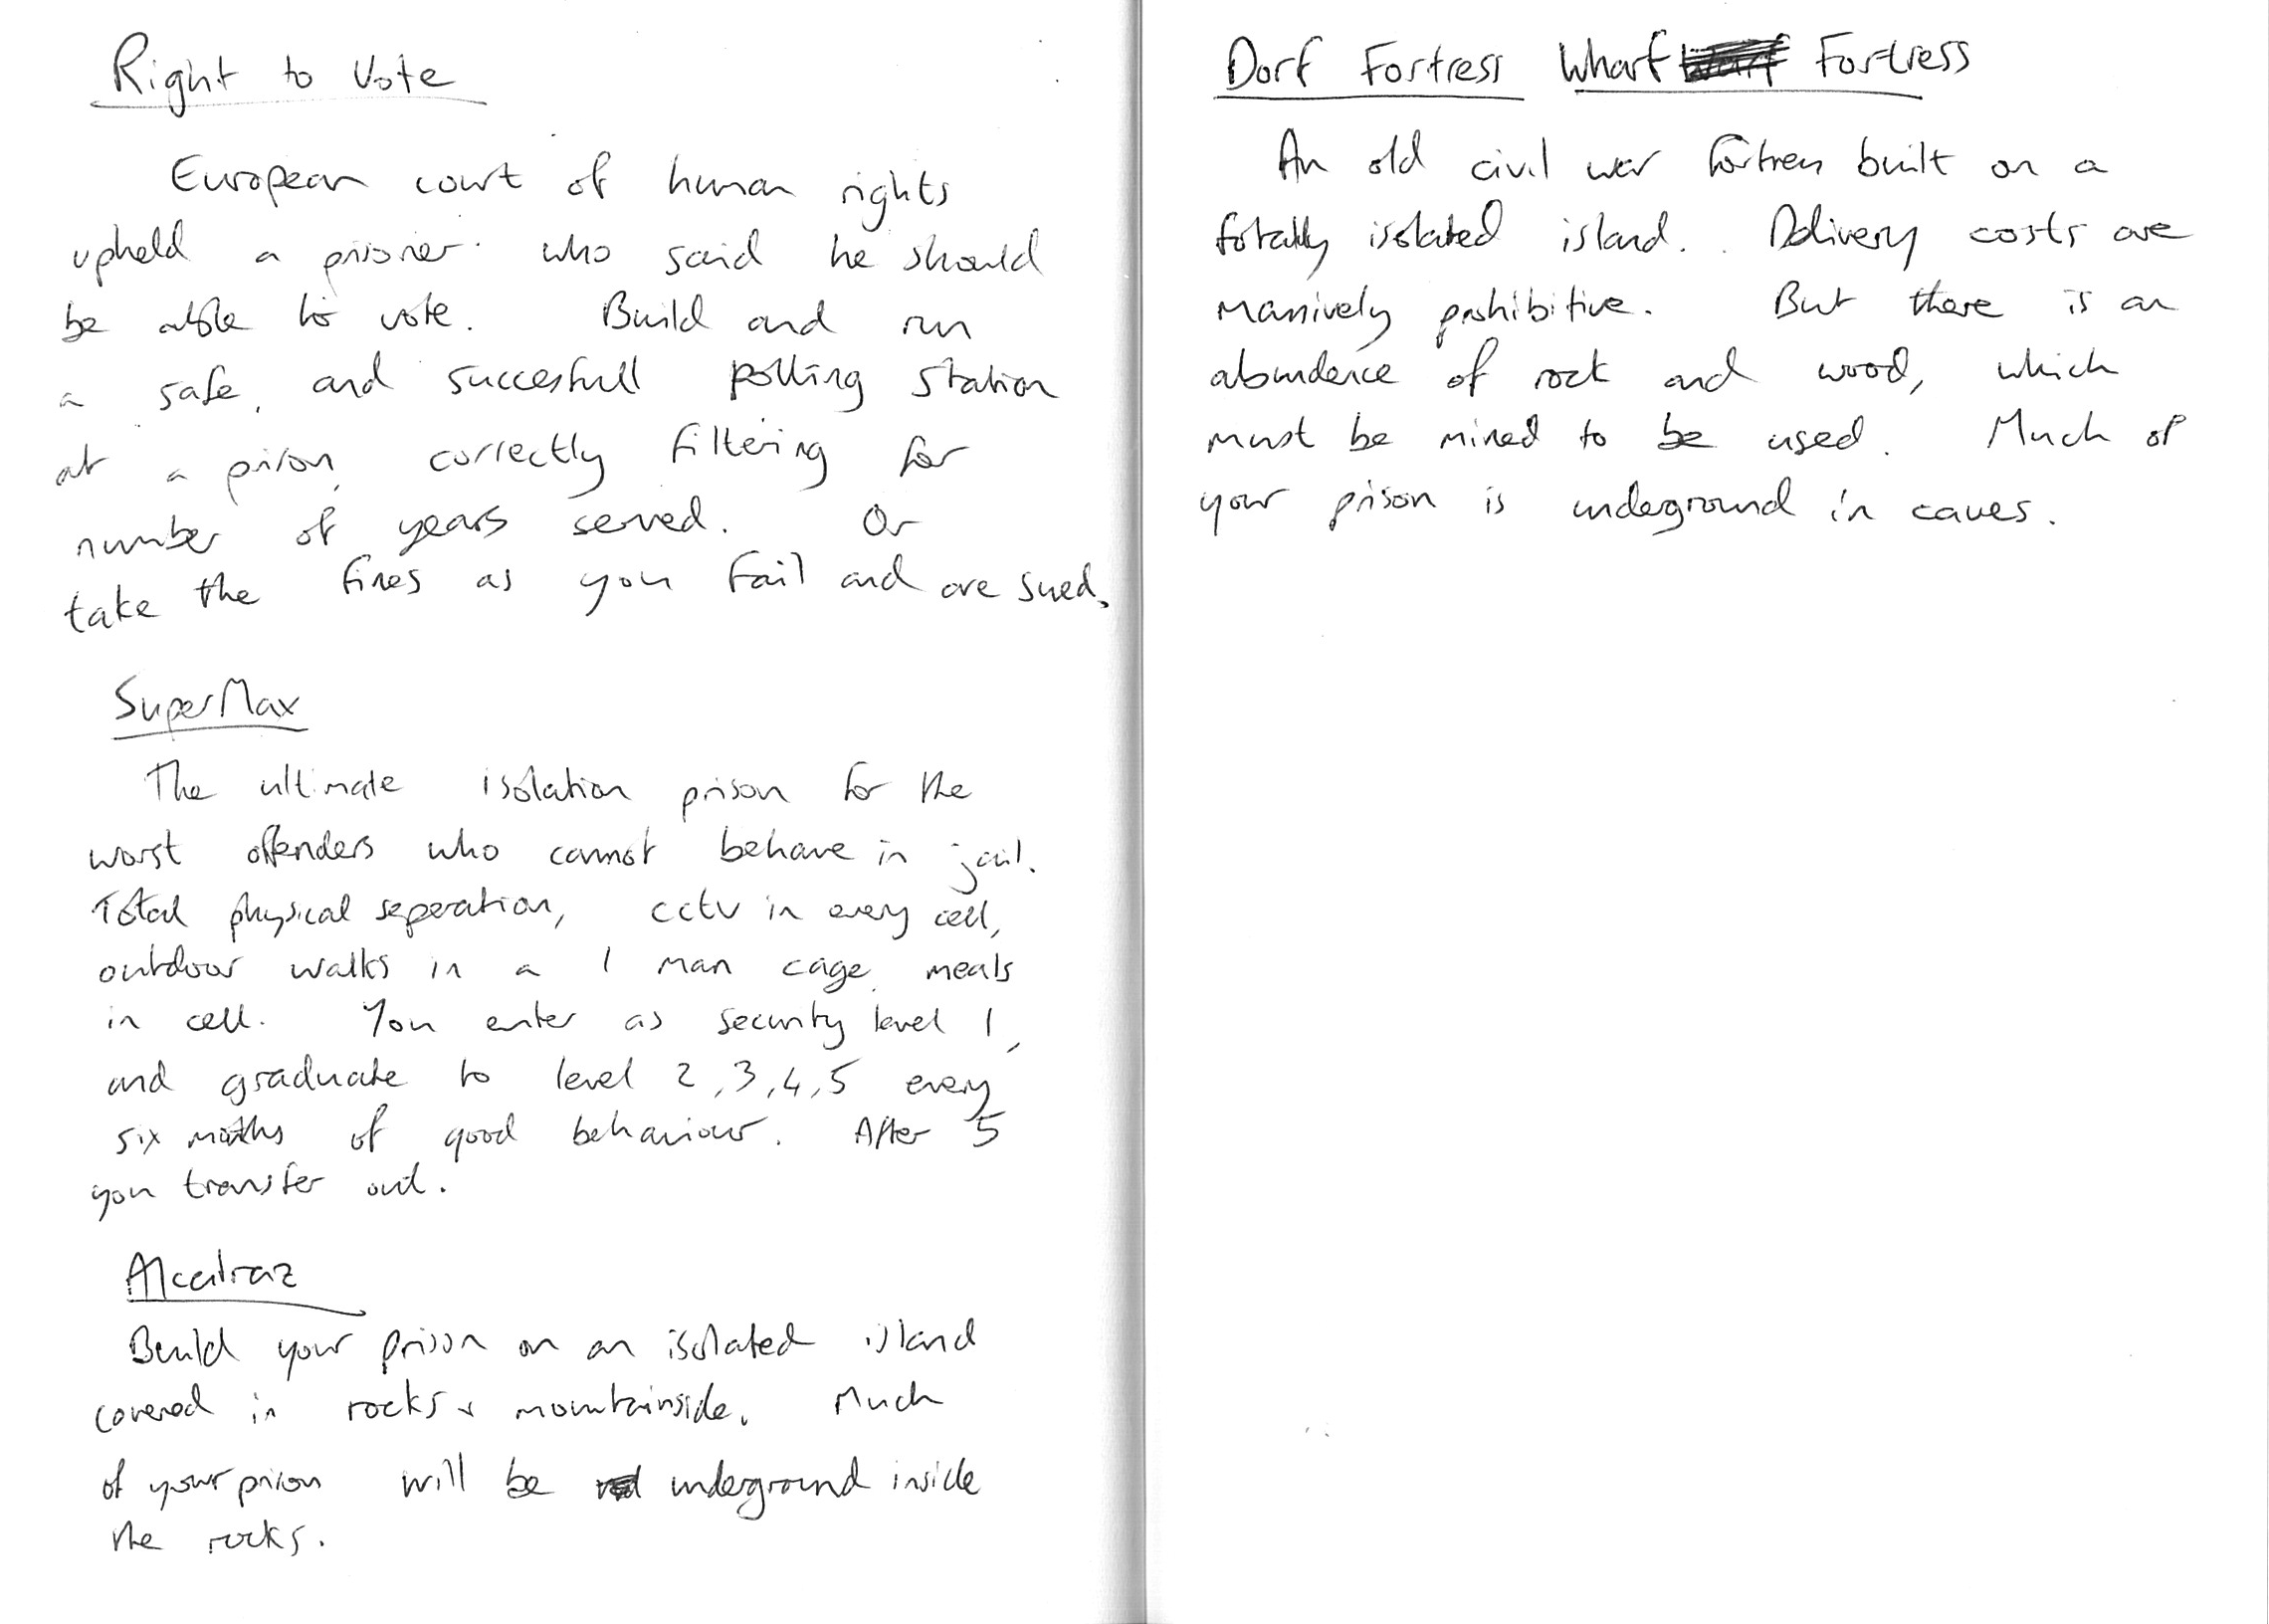 Right to Vote
European court of human rights
upheld a prisoner who said he should
be able to vote. Build and run
a safe, and succesfull polling station
at a prison, correctly filtering for
number of years served. Or
take the fines as you fail and are sued.
SuperMax
The ultimate isolation prison for the
worst offenders who cannot behave in jail.
Total physical seperation, cctv in every cell,
outdoor walks in a 1 man cage, meals
in cell. You enter as security level 1,
and graduate to level 2,3,4,5 every
six months of good behaviour. After 5
you transfer out.
Alcatraz
Build your prison on an isolated island
covered in rocks + mountainside. Much
of your prison will be underground inside
the rocks.
Dorf Fortress Wharf Fortress
An old civil war fortress built on a
totally isolated island. Delivery costs are
massively prohibitive. But there is an
abundence of rock and wood, which
must be mined to be used. Much of
your prison is underground in caves.